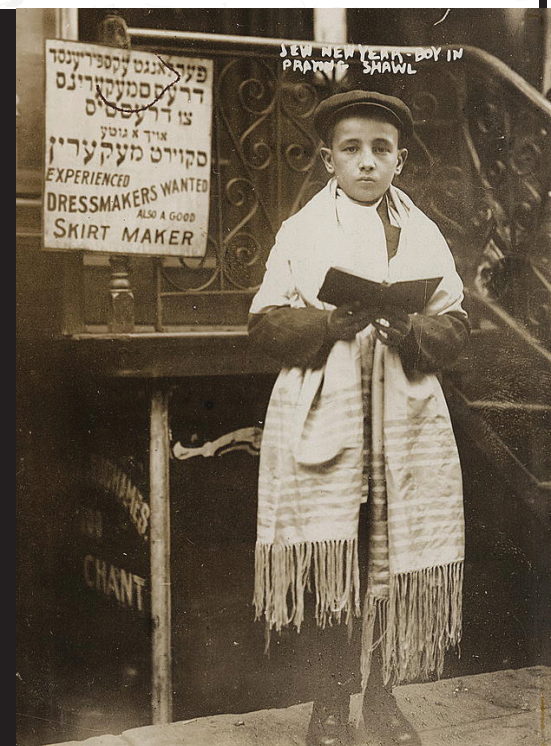 JEW NEW YEAR - BOY IN
PRAYING SHAWL
פערלאנגט עקספיריענסד
דרעסמעקערינס
צו דרעססיס
אויך א גוטע
סקוירט מעקערין
EXPERIENCED
DRESSMAKERS WANTED
ALSO A GOOD
SKIRT MAKER
CHANT